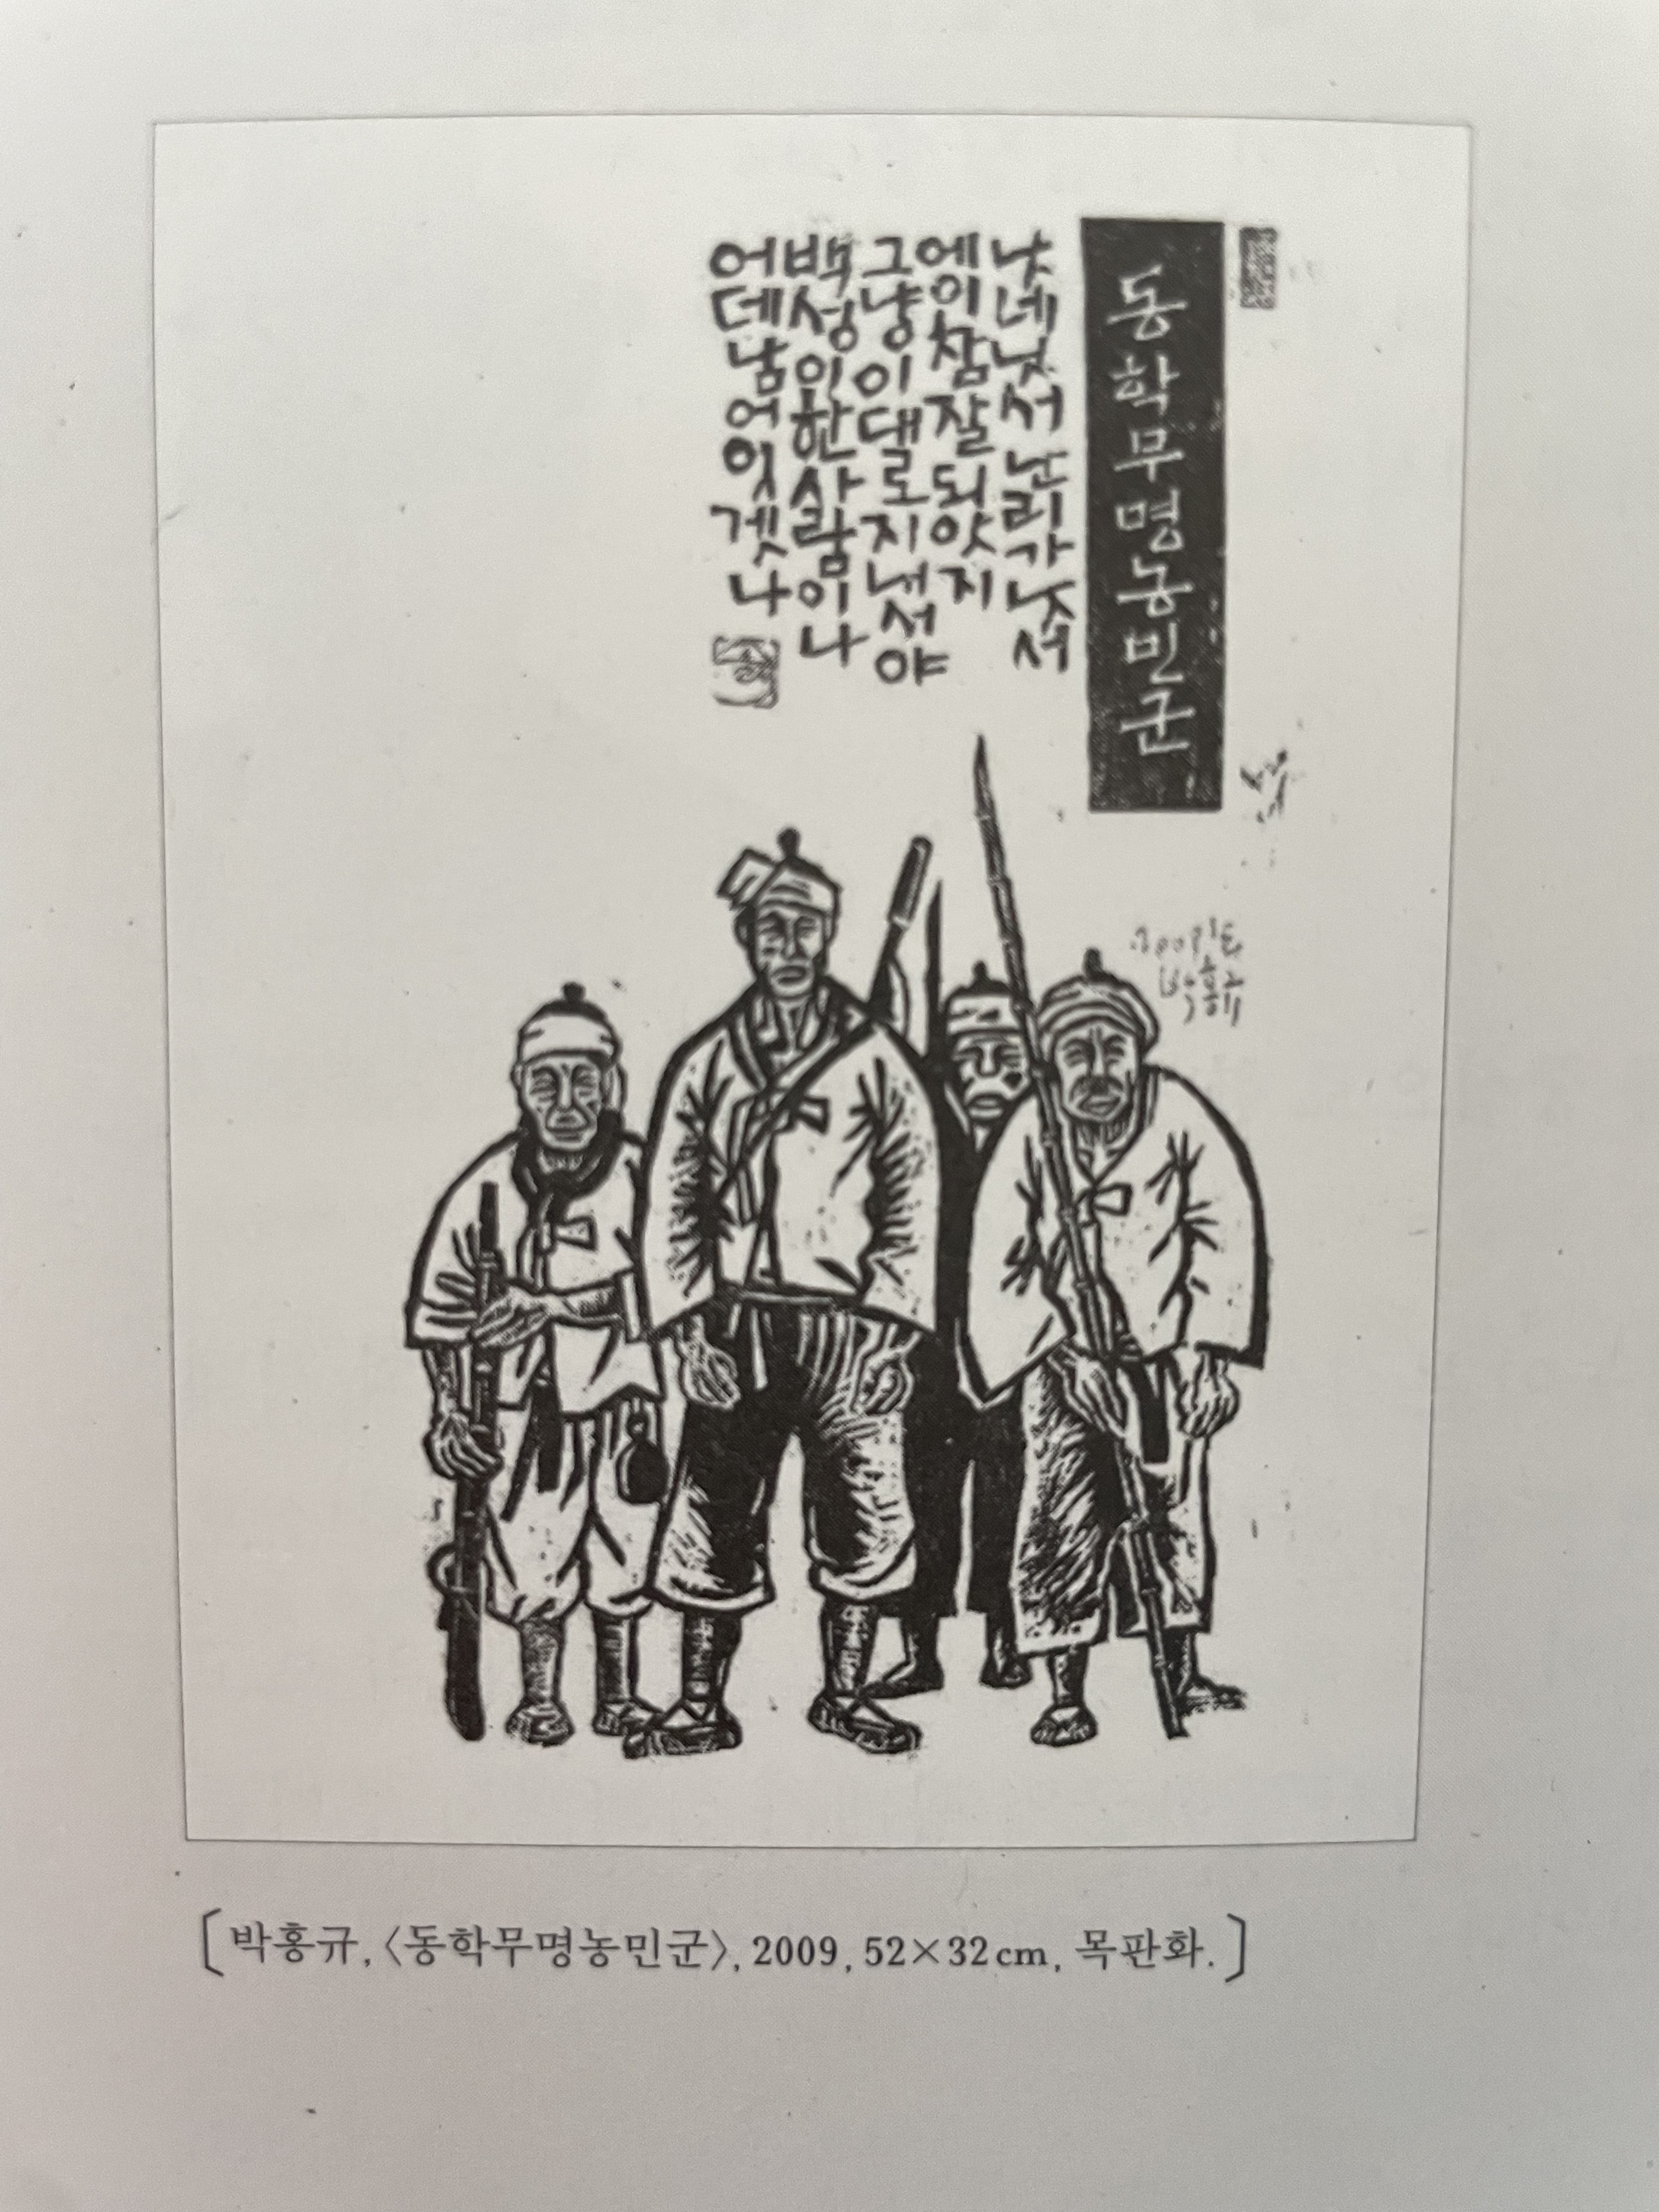 동학무명농민군
낫네 낫서 난리가 낫서
에이 참 잘 되얏지
그냥 이댈로 지내서야
백성이 한 사람이나
어데 남어 잇겟나
박홍규
[박홍규, 〈동학무명농민군〉, 2009, 52×32cm, 목판화.]